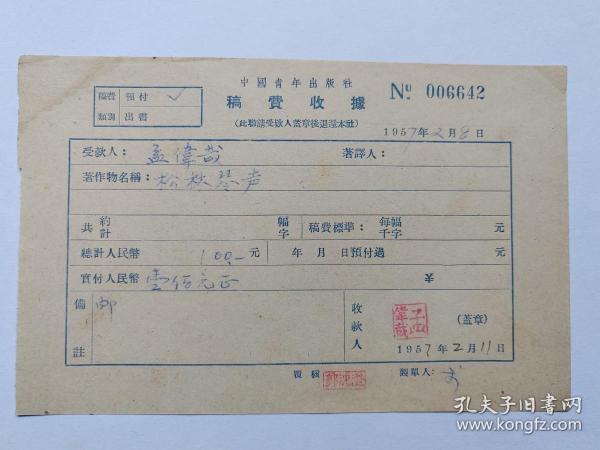 中國青年出版社
稿費收據
Nº 006642
(此聯請受欵人蓋章後退還本社)
稿費 預付 ✓
類別 出書
1957年2月8日
受欵人：孟偉哉 著譯人：
著作物名稱：松林琴声
共約計 幅字 稿費標準：每幅千字 元
總計人民幣 100.- 元 年 月 日預付過 元
實付人民幣 壹佰元正 ¥
備註 邮
收欵人 孟偉哉 (蓋章)
1957年2月11日
覆核 製單人：
孔夫子旧书网
www.kongfz.com